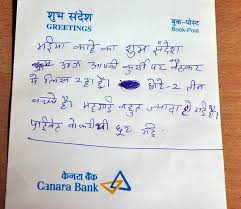 शुभ संदेश
GREETINGS
बुक-पोस्ट
Book-Post
भईया काहे का शुभ संदेश
आज आपकी कुर्सी पर बैठकर
लिख रहा हूँ। छोटे-2 तीन
बच्चे हैं। महंगाई बहुत ज्यादा हो गई है।
प्राईवेट नौकरी भी छूट गई।
केनरा बैंक
Canara Bank